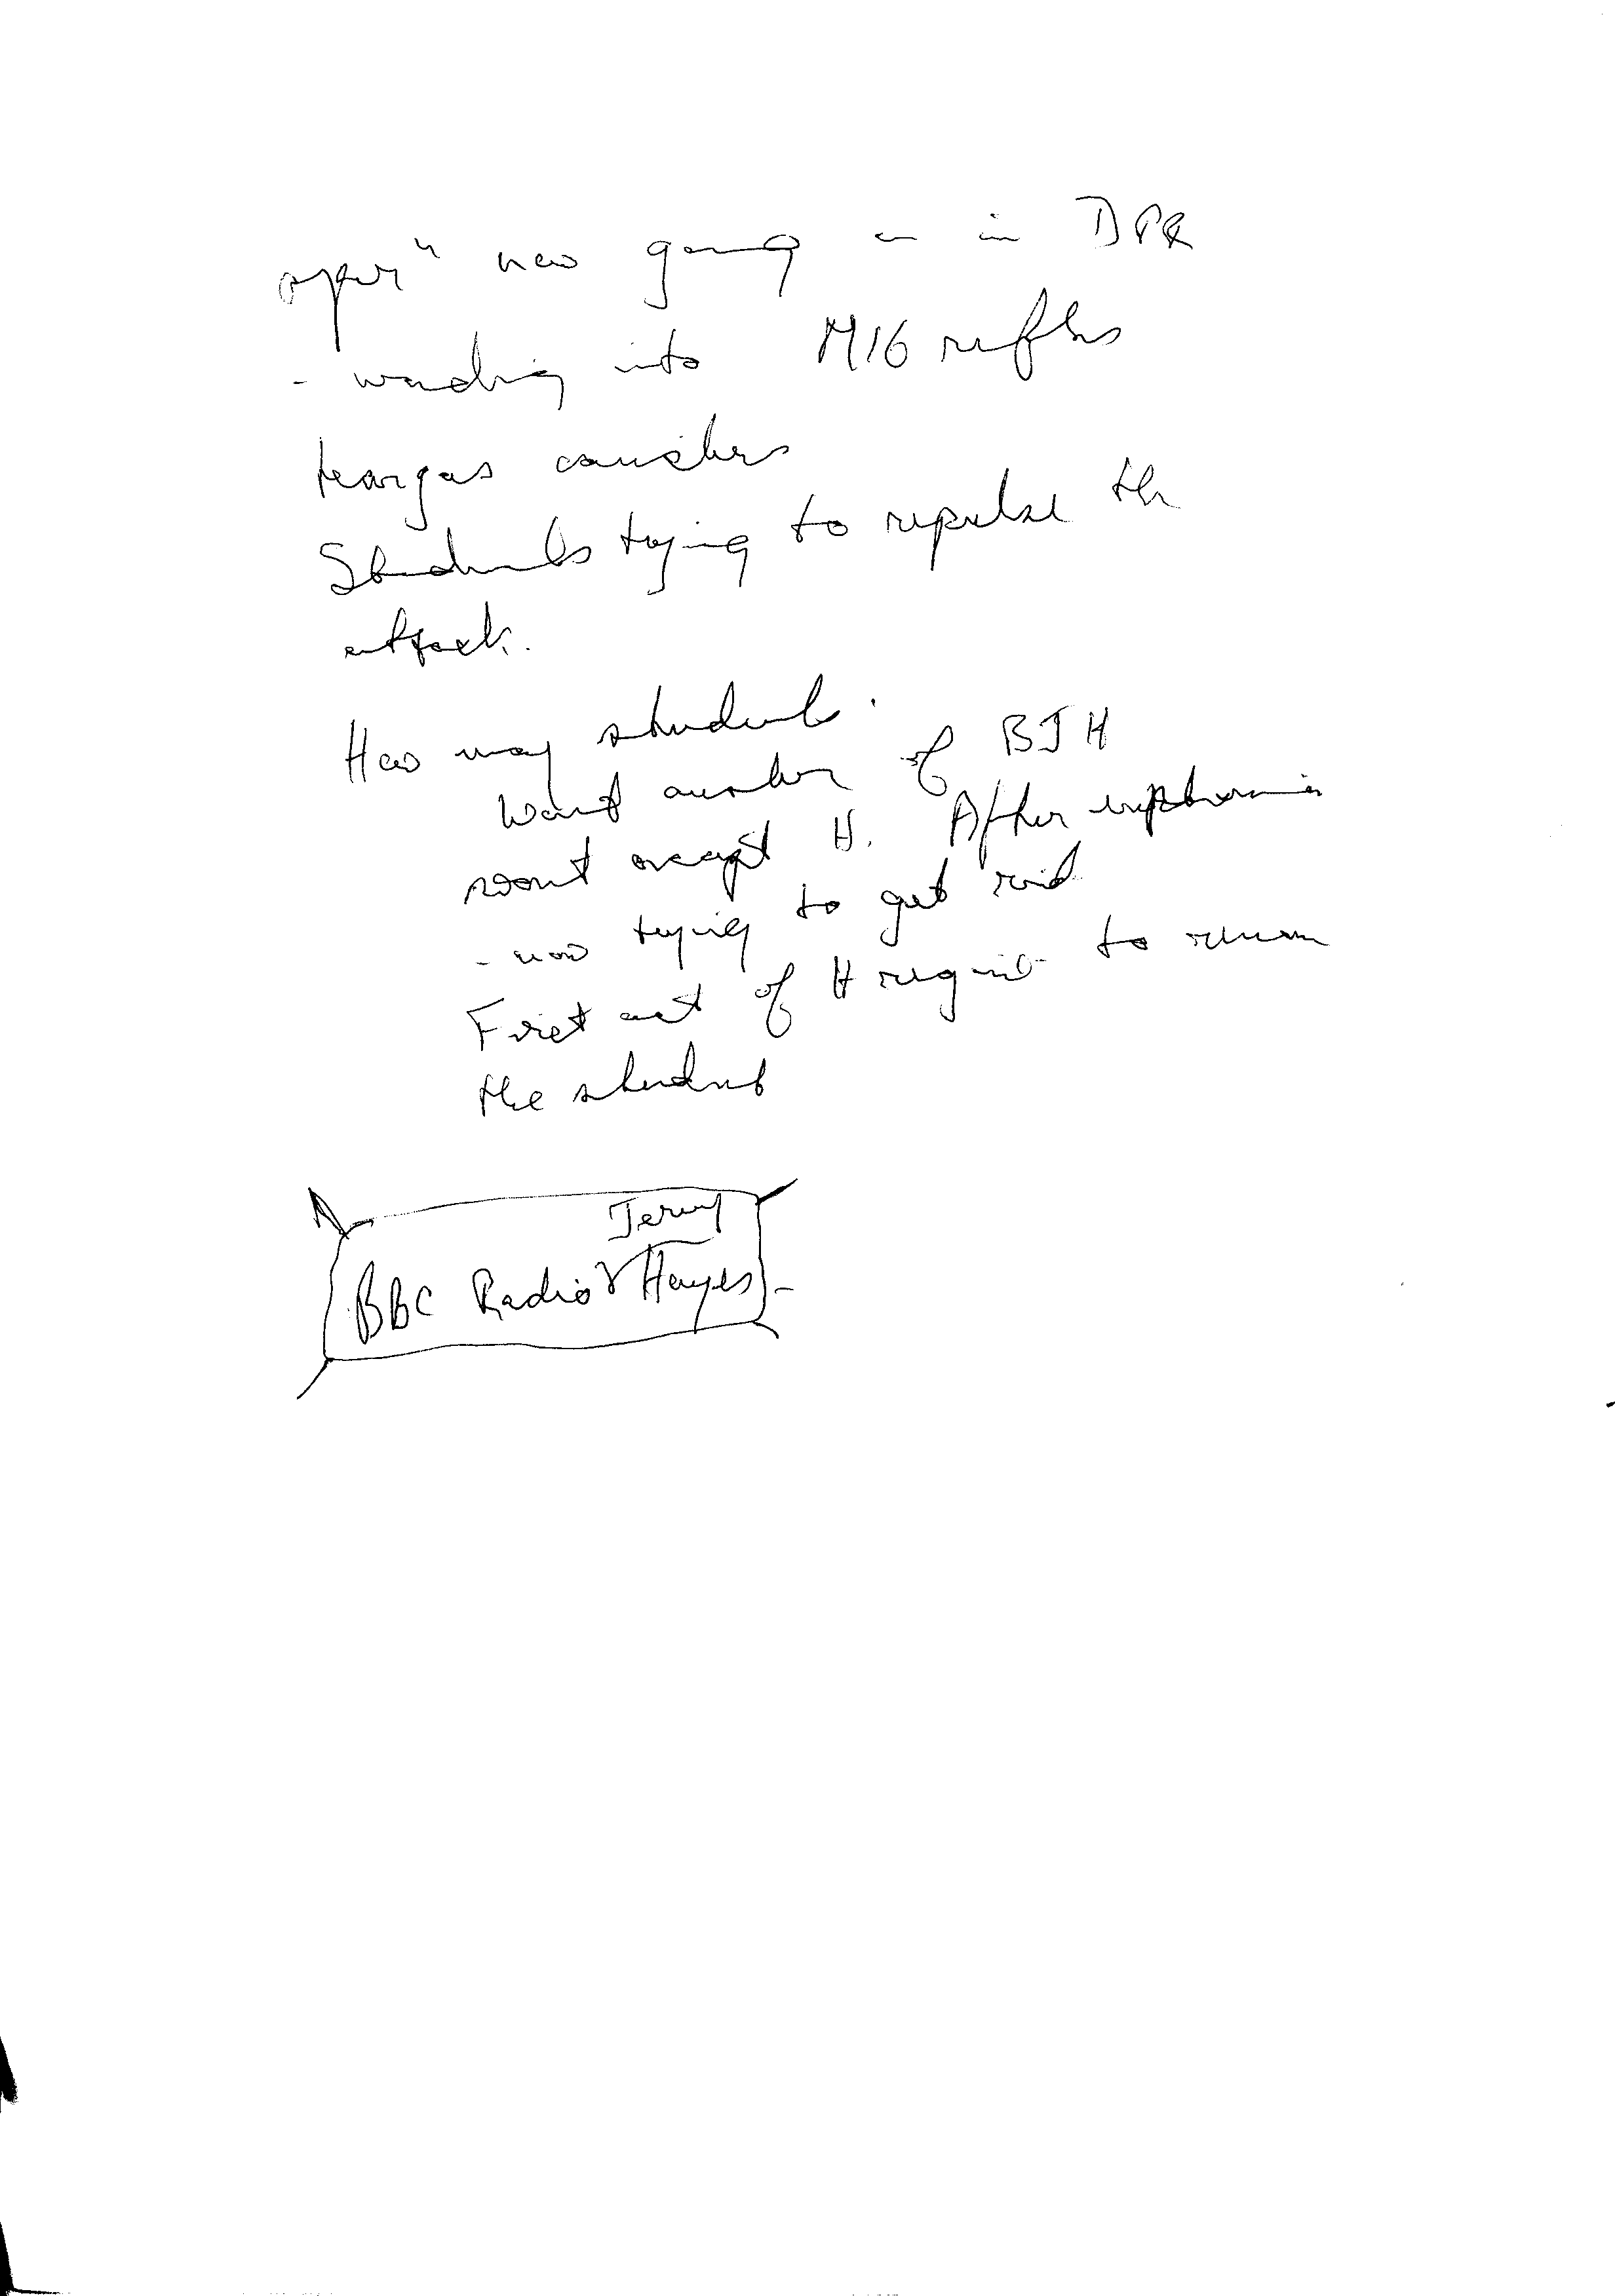 oper" now going on in DPR
- wading into M16 rifles
teargas canisters
Students trying to repulse the
attack.
How many students.
Want number of BJH
wont accept H. After euphoria
- now trying to get rid
First act of H regime to remove
the students
Jeremy
BBC Radio Hayes -